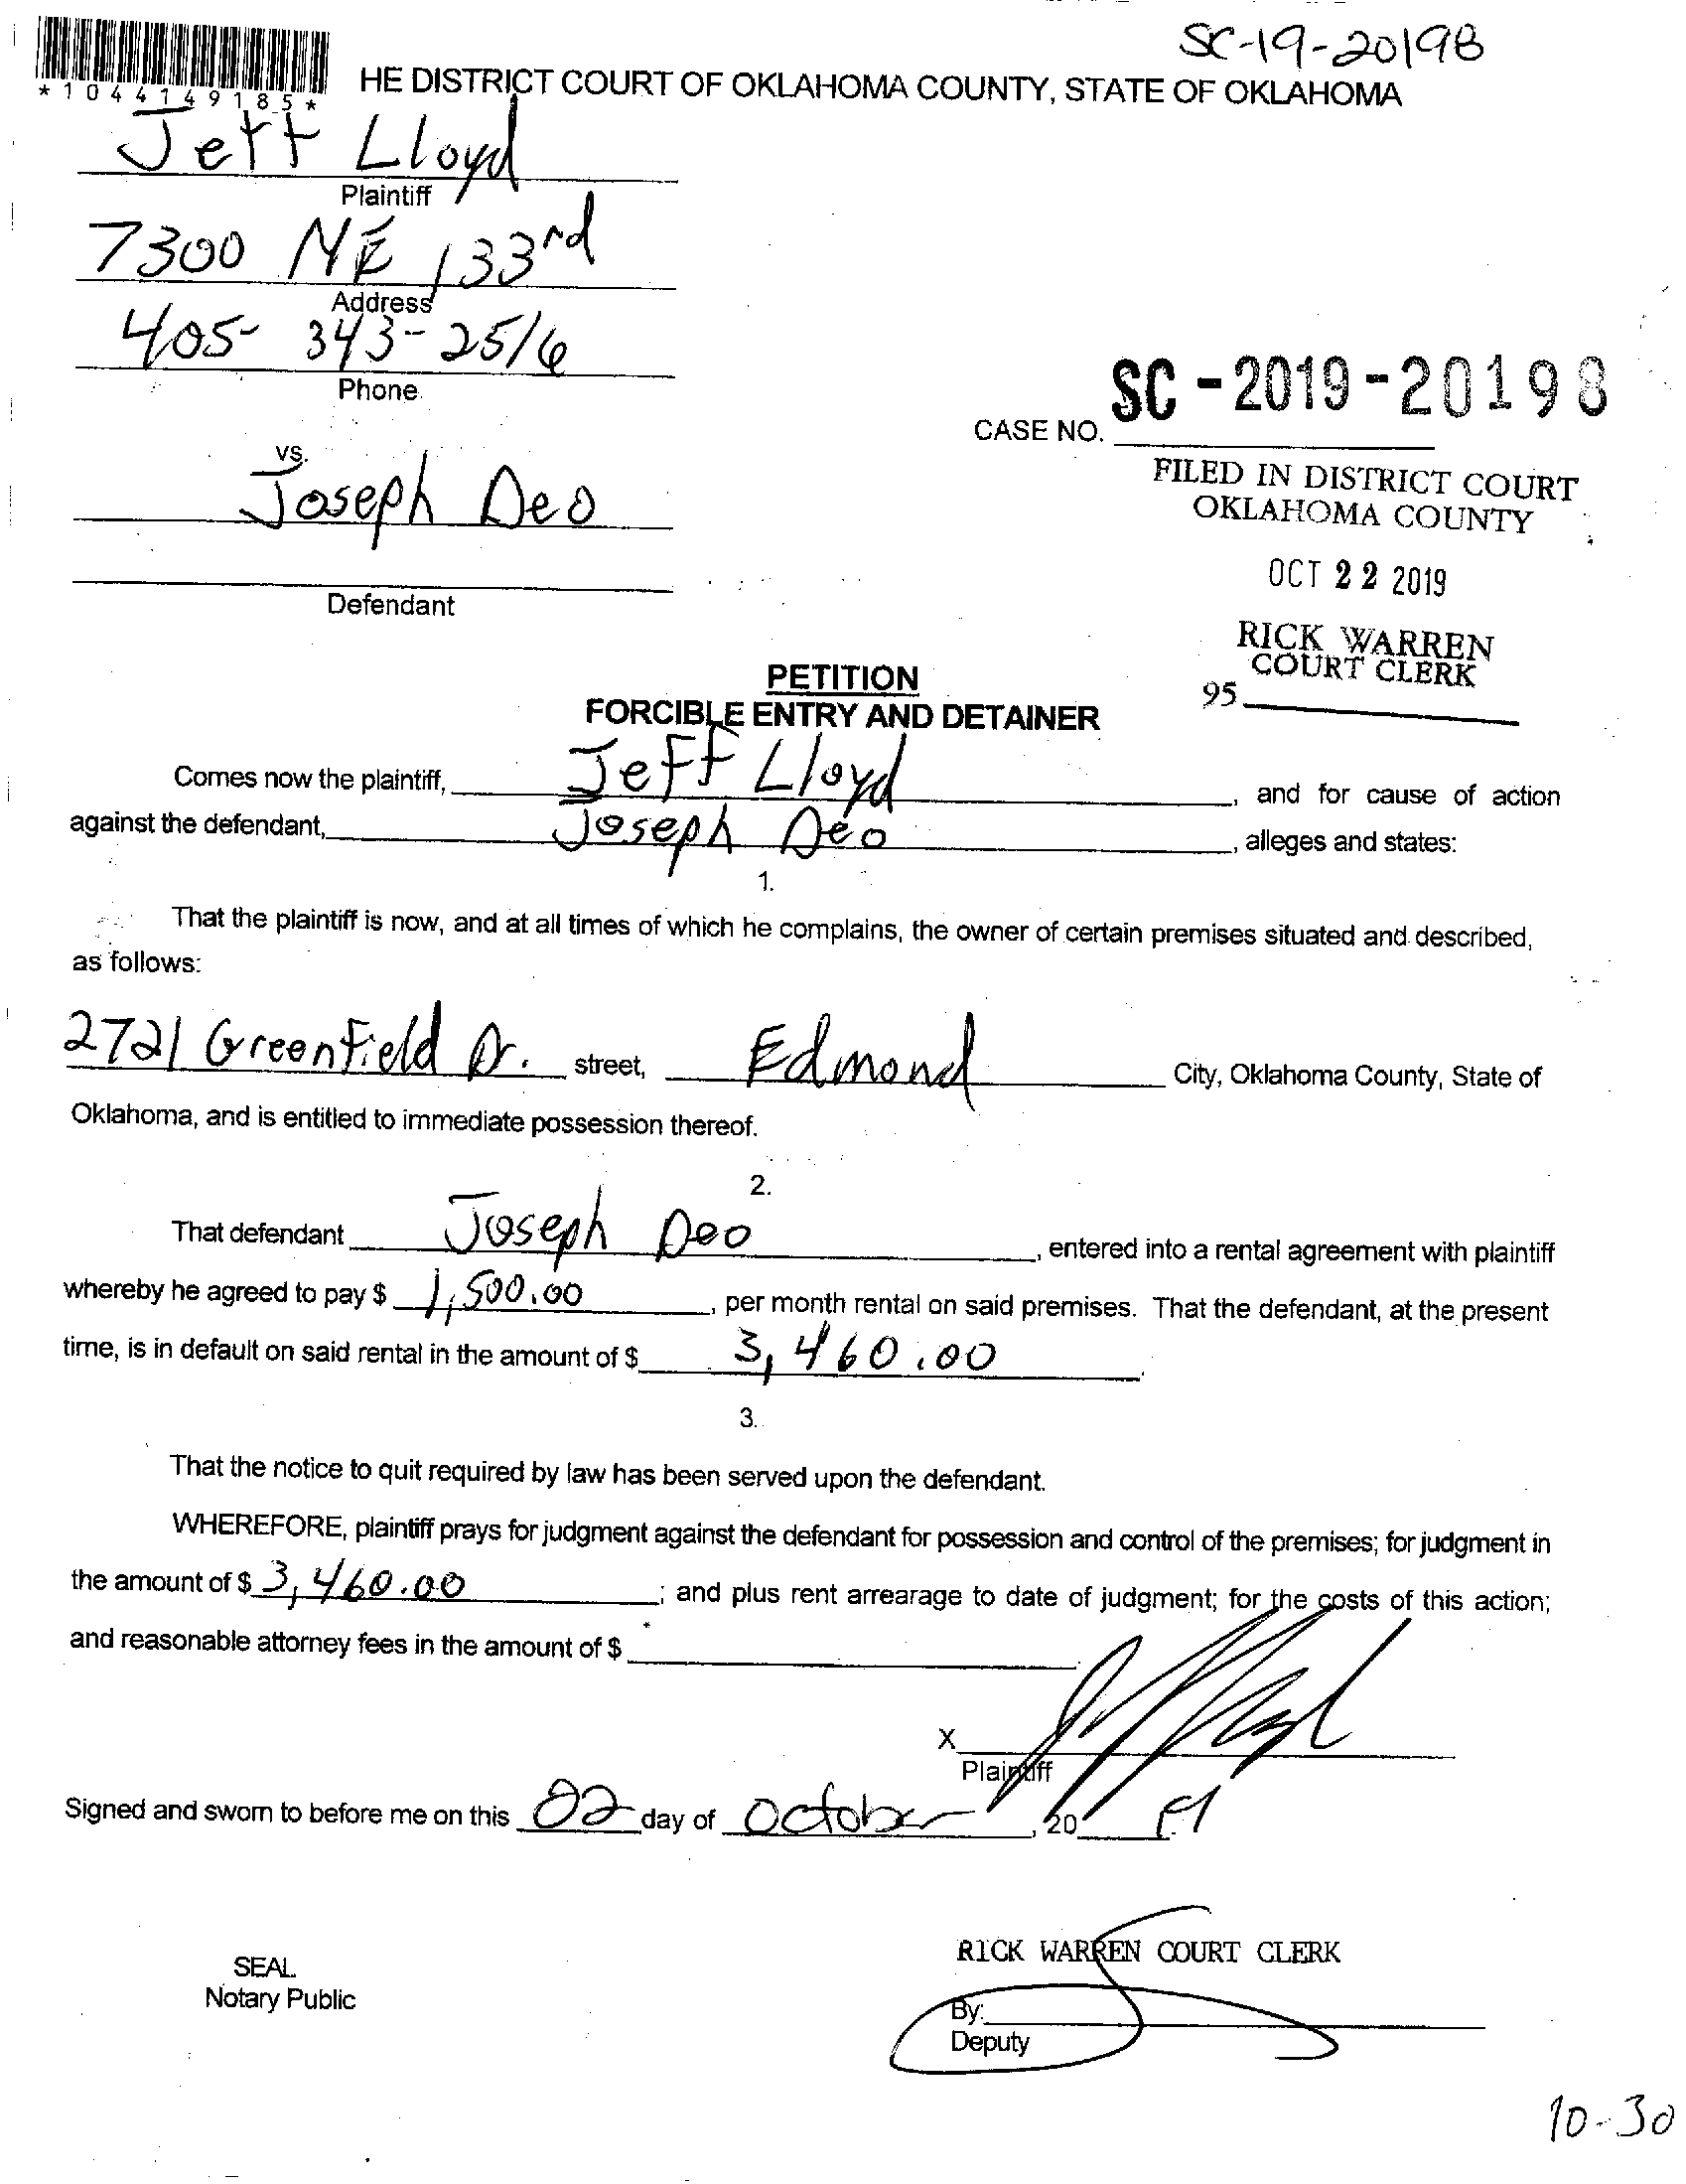 SC-19-20198
*1044149185*
HE DISTRICT COURT OF OKLAHOMA COUNTY, STATE OF OKLAHOMA
Jeff Lloyd
Plaintiff
7300 NE 133rd
Address
405-343-2516
Phone
CASE NO. SC-2019-20198
vs.
Joseph Deo
Defendant
FILED IN DISTRICT COURT
OKLAHOMA COUNTY
OCT 22 2019
RICK WARREN
COURT CLERK
95
PETITION
FORCIBLE ENTRY AND DETAINER
Comes now the plaintiff, Jeff Lloyd, and for cause of action
against the defendant, Joseph Deo, alleges and states:
1.
That the plaintiff is now, and at all times of which he complains, the owner of certain premises situated and described,
as follows:
2721 Greenfield Dr. street, Edmond City, Oklahoma County, State of
Oklahoma, and is entitled to immediate possession thereof.
2.
That defendant Joseph Deo, entered into a rental agreement with plaintiff
whereby he agreed to pay $ 1,500.00, per month rental on said premises. That the defendant, at the present
time, is in default on said rental in the amount of $ 3,460.00.
3.
That the notice to quit required by law has been served upon the defendant.
WHEREFORE, plaintiff prays for judgment against the defendant for possession and control of the premises; for judgment in
the amount of $ 3,460.00; and plus rent arrearage to date of judgment; for the costs of this action;
and reasonable attorney fees in the amount of $
X
Plaintiff
Signed and sworn to before me on this 22 day of October, 20 19
SEAL
Notary Public
RICK WARREN COURT CLERK
By:
Deputy
10-30